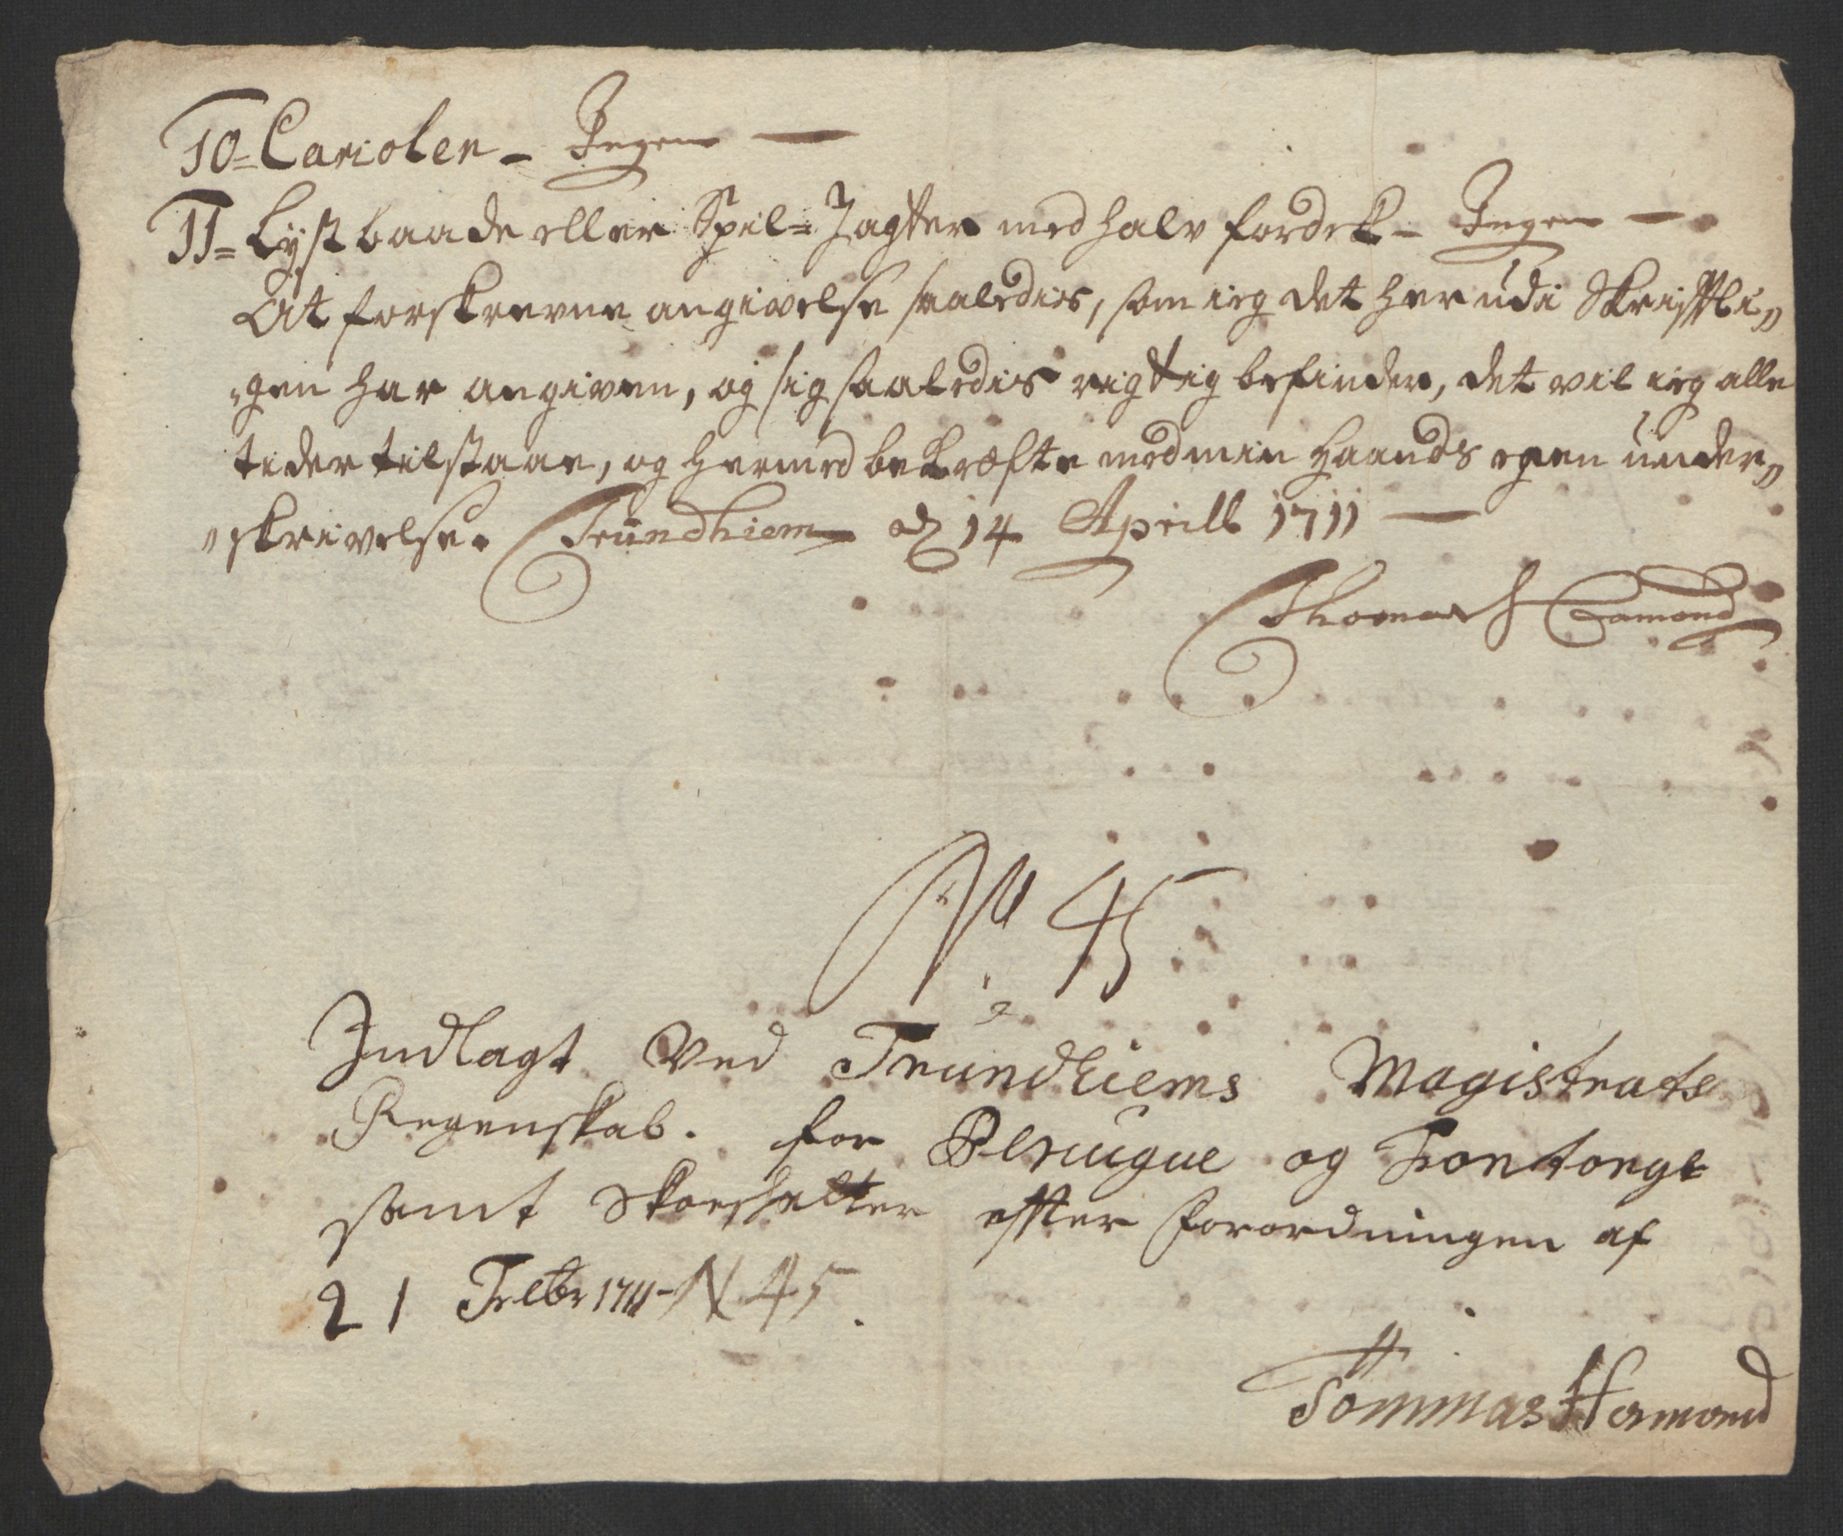 10= Carioler - Ingen —
11= Lystbaade eller Spil=Jagter med halv fordek - Ingen —
At forskrevne angivelse saaledis, som ieg det her udi Skriftli„
„gen har angiven, og sig saaledis rigtig befinder, det vil ieg alle
tider tilstaae, og hermed bekræfte med min Haands egen under„
„skrivelse. Trundhiem d 14 Aprill 1711 —
Thomas Hamond
No 45
Indlagt Ved Trundhiems Magistrats
Regenskab. for Peruque og Fontonge
samt Skarsfelter efter forordningen af
21 Febr 1711 - N 45.
Tommas Hamond